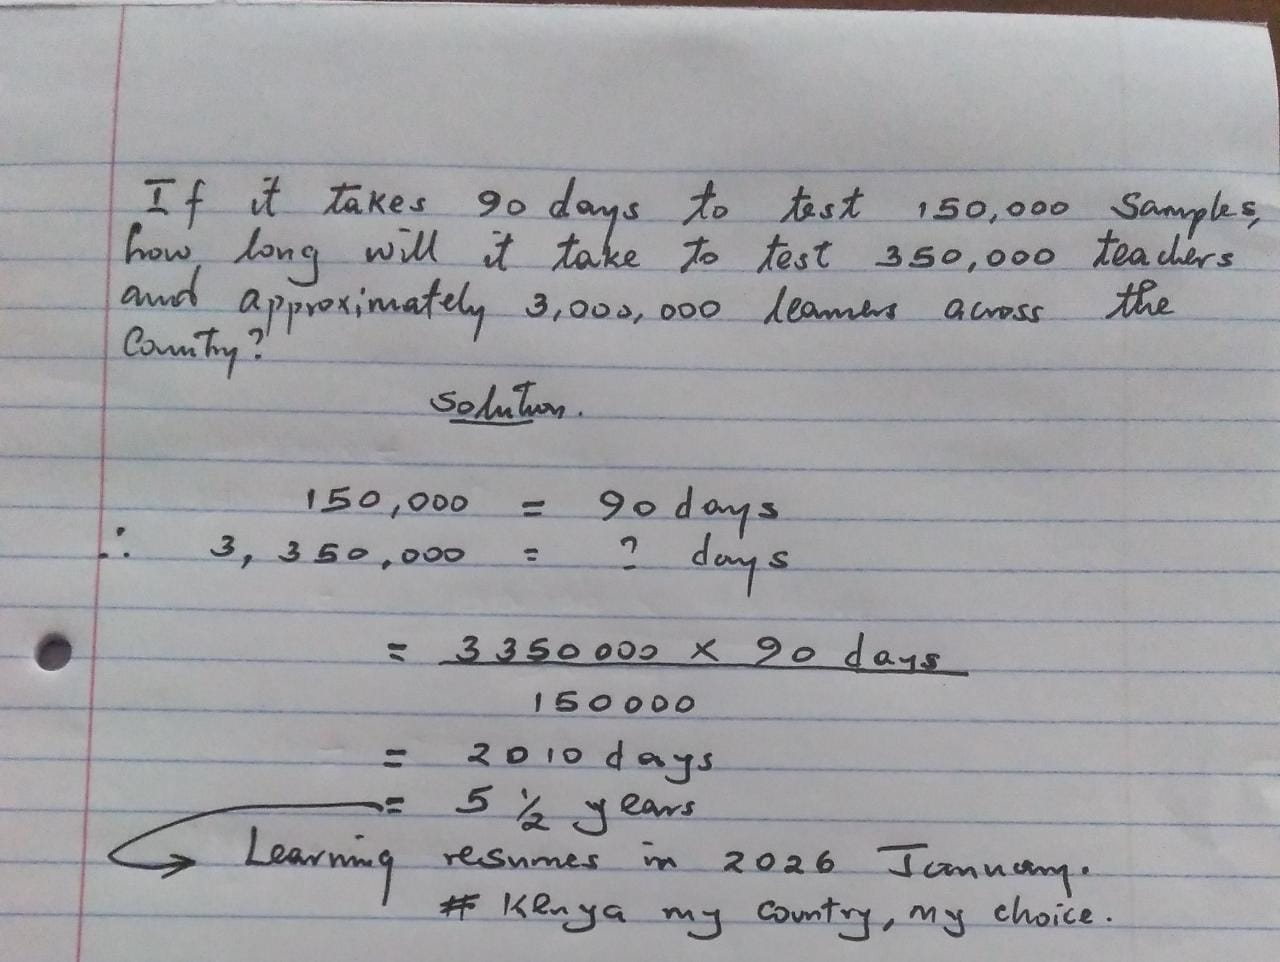 If it takes 90 days to test 150,000 Samples,
how long will it take to test 350,000 teachers
and approximately 3,000,000 learners across the
Country?
Solution.
150,000 = 90 days
∴ 3,350,000 = ? days
= 3350000 x 90 days
150000
= 2010 days
= 5 1/2 years
Learning resumes in 2026 January.
# Kenya my country, my choice.